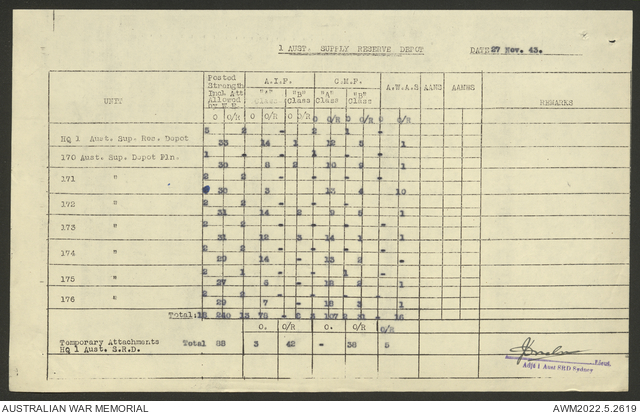 1 AUST. SUPPLY RESERVE DEPOT DATE 27 Nov. 43.
UNIT Posted Strength Incl. Att Allowed by W.E. A.I.F. C.M.F. A.W.A.S AANS AAMWS REMARKS
"A" Class "B" Class "A" Class "B" Class
O O/R O O/R O/R O O/R O O/R O/R
5 2 - 2 1 -
HQ 1 Aust. Sup. Res. Depot 33 14 1 12 5 1
1 - - 1 - -
170 Aust. Sup. Depot Pln. 30 8 2 10 9 1
2 2 - - - -
171 " 30 3 - 13 4 10
2 2 - - - -
172 " 31 14 2 9 5 1
2 2 - - - -
173 " 31 12 3 14 1 1
2 2 - - - -
174 " 29 14 - 13 2 -
2 1 - - 1 -
175 " 27 6 - 18 2 1
2 2 - - - -
176 " 29 7 - 18 3 1
Total. 18 240 13 78 - 8 3 107 2 31 - 16
O. O/R O. O/R O/R
Temporary Attachments
HQ 1 Aust. S.R.D. Total 88 3 42 - 38 5
Lieut.
Adjt 1 Aust SRD Sydney
AUSTRALIAN WAR MEMORIAL AWM2022.5.2619